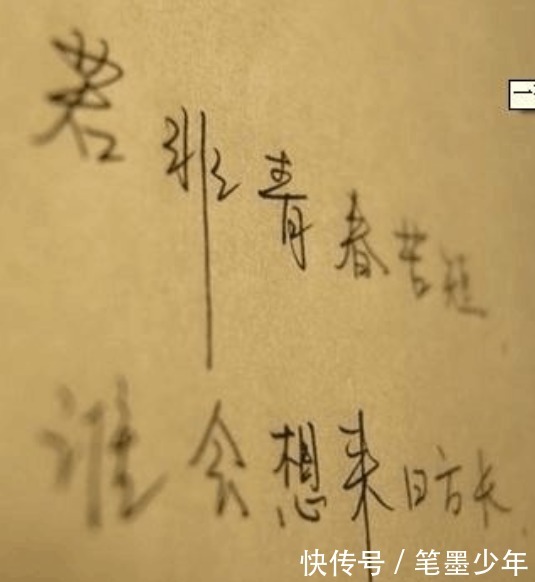 若非青春苦短
谁会想来日方长
快传号 / 笔墨少年